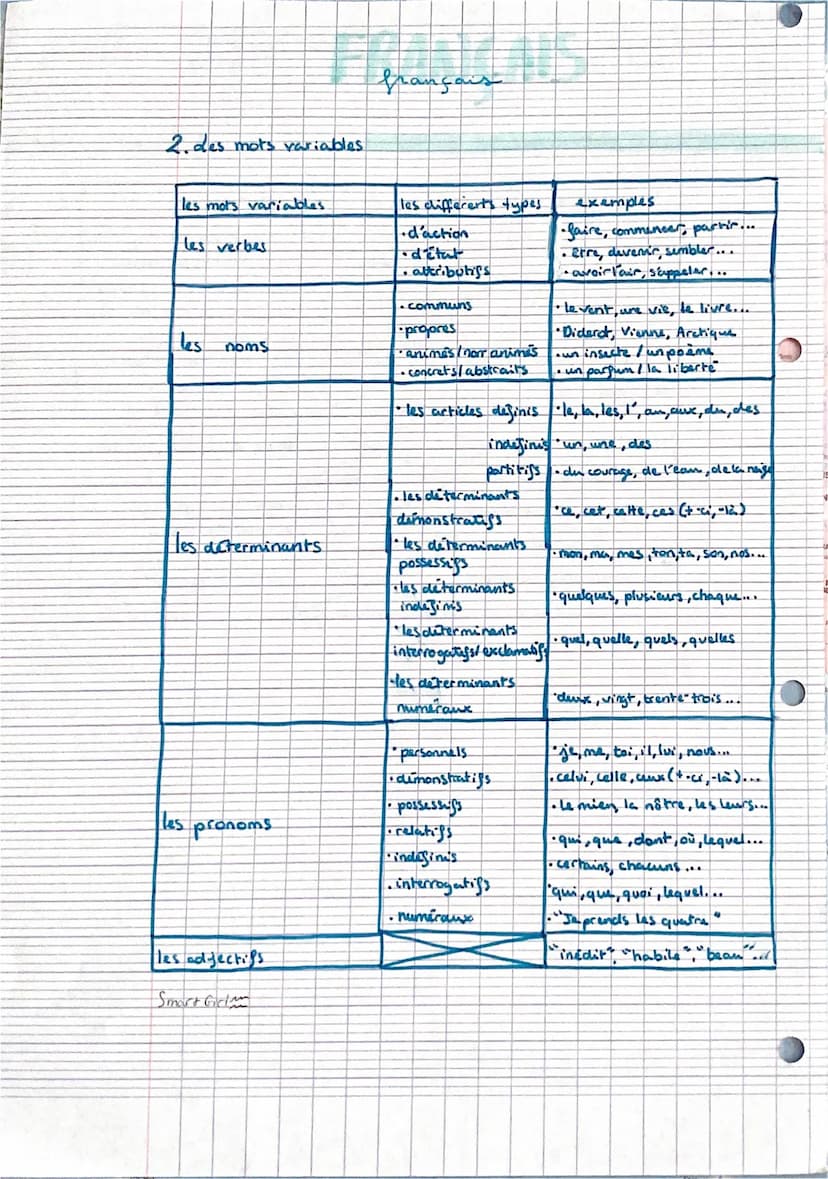 FRANÇAIS
français
2. des mots variables
les mots variables les différents types exemples
les verbes
• d'action • faire, commencer, partir...
• d'état • être, devenir, sembler...
• attributifs • avoir l'air, s'appeler...
les noms
• communs • le vent, une vie, le livre...
• propres • Diderot, Vienne, Arctique
• animés / non animés • un insecte / un poème
• concrets / abstraits • un parfum / la liberté
les déterminants
• les articles définis • le, la, les, l', au, aux, du, des
indéfinis • un, une, des
partitifs • du courage, de l'eau, de la neige
• les déterminants
démonstratifs • ce, cet, cette, ces (+ -ci, -là)
• les déterminants
possessifs • mon, ma, mes, ton, ta, son, nos...
• les déterminants
indéfinis • quelques, plusieurs, chaque...
• les déterminants
interrogatifs / exclamatifs • quel, quelle, quels, quelles
• les déterminants
numéraux • deux, vingt, trente-trois...
les pronoms
• personnels • je, me, toi, il, lui, nous...
• démonstratifs • celui, celle, ceux (+ -ci, -là)...
• possessifs • le mien, la nôtre, les leurs...
• relatifs • qui, que, dont, où, lequel...
• indéfinis • certains, chacuns...
• interrogatifs • qui, que, quoi, lequel...
• numéraux • "Je prends les quatre"
les adjectifs "inédit", "habile", "beau"...
Smart Girl